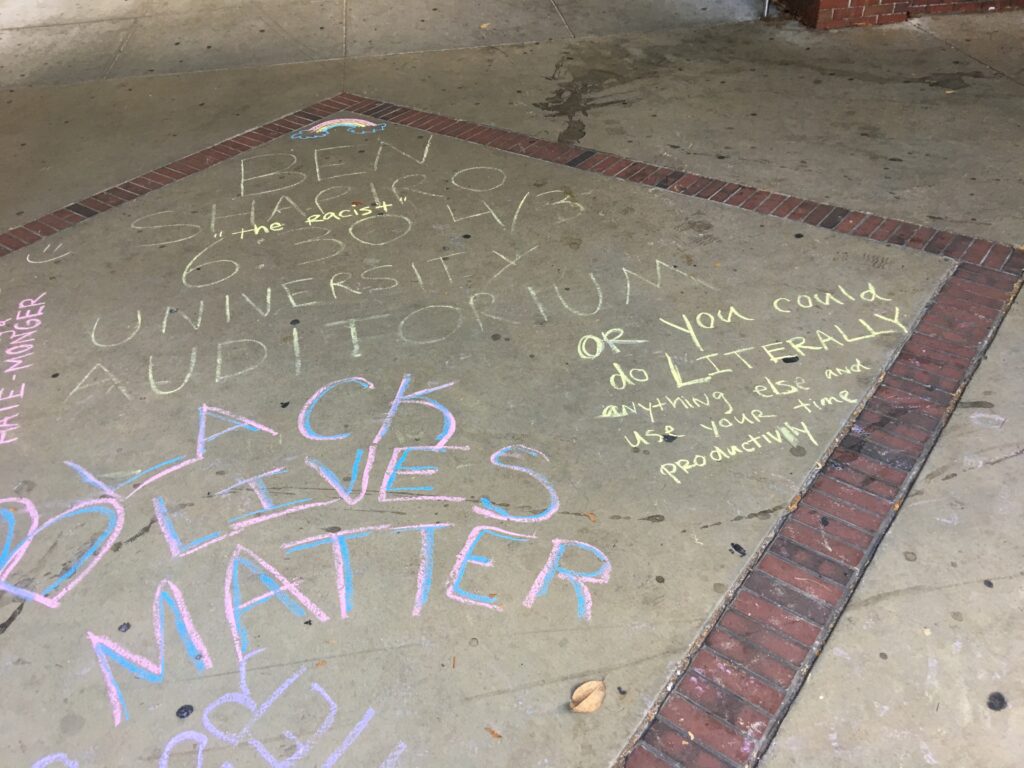 BEN
SHAPIRO
"the Racist"
6:30 4/3
UNIVERSITY
AUDITORIUM
OR You could
do LITERALLY
anything else and
use your time
productivly
HATE-MONGER
BLACK
LIVES
MATTER